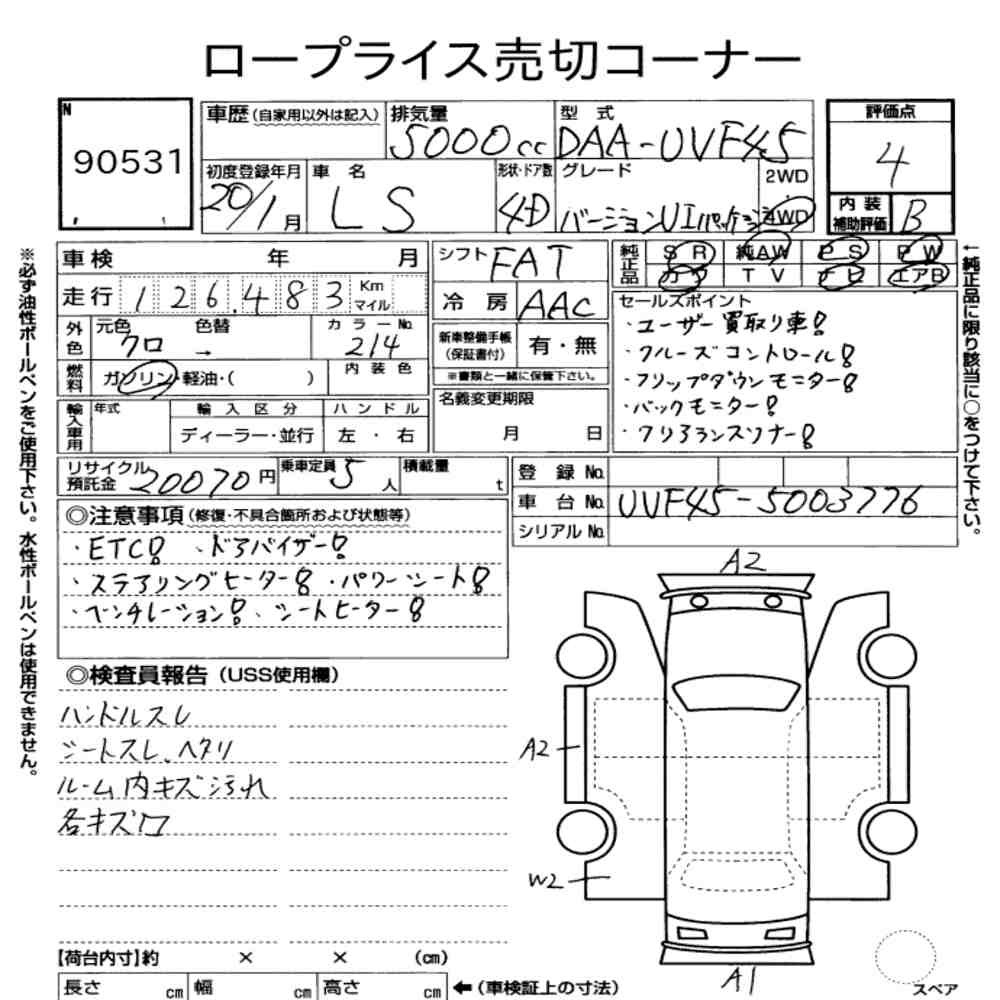 ロープライス売切コーナー
N
90531
車歴 (自家用以外は記入)
排気量
5000cc
型 式
DAA-UVF45
初度登録年月
20/1月
車 名
LS
形状・ドア数
4D
グレード
バージョンUIパッケージ
2WD
・
4WD
評価点
4
内 装
補助評価
B
車検 年 月
走行 126,483 Km
マイル
外色
元色 色替
クロ →
カラーNo.
214
燃料
ガソリン・軽油・( )
内 装 色
輸入車用
年式
輸 入 区 分
ディーラー・並行
ハ ン ド ル
左 ・ 右
シフト FAT
冷 房 AAC
新車整備手帳
(保証書付)
有・無
※書類と一緒に保管下さい。
名義変更期限
月 日
純正品
SR 純AW PS PW
カワ TV ナビ エアB
セールスポイント
・ユーザー買取り車!
・クルーズコントロール!
・フリップダウンモニター!
・バックモニター!
・クリアランスソナー!
←純正品に限り該当に○をつけて下さい。
※必ず油性ボールペンをご使用下さい。水性ボールペンは使用できません。
リサイクル
預託金
20070円
乗車定員 5人
積載量 t
登 録 No.
車 台 No. UVF45-5003776
シリアル No.
◎注意事項 (修復・不具合箇所および状態等)
・ETC! ・ドアバイザー!
・ステアリングヒーター! ・パワーシート!
・ベンチレーション! ・シートヒーター!
◎検査員報告 (USS使用欄)
ハンドルスレ
シートスレ、ヘタリ
ルーム内キズ汚れ
各キズワ
A2
A2
W2
A1
スペア
【荷台内寸】約 × × (cm)
長さ cm 幅 cm 高さ cm ←(車検証上の寸法)